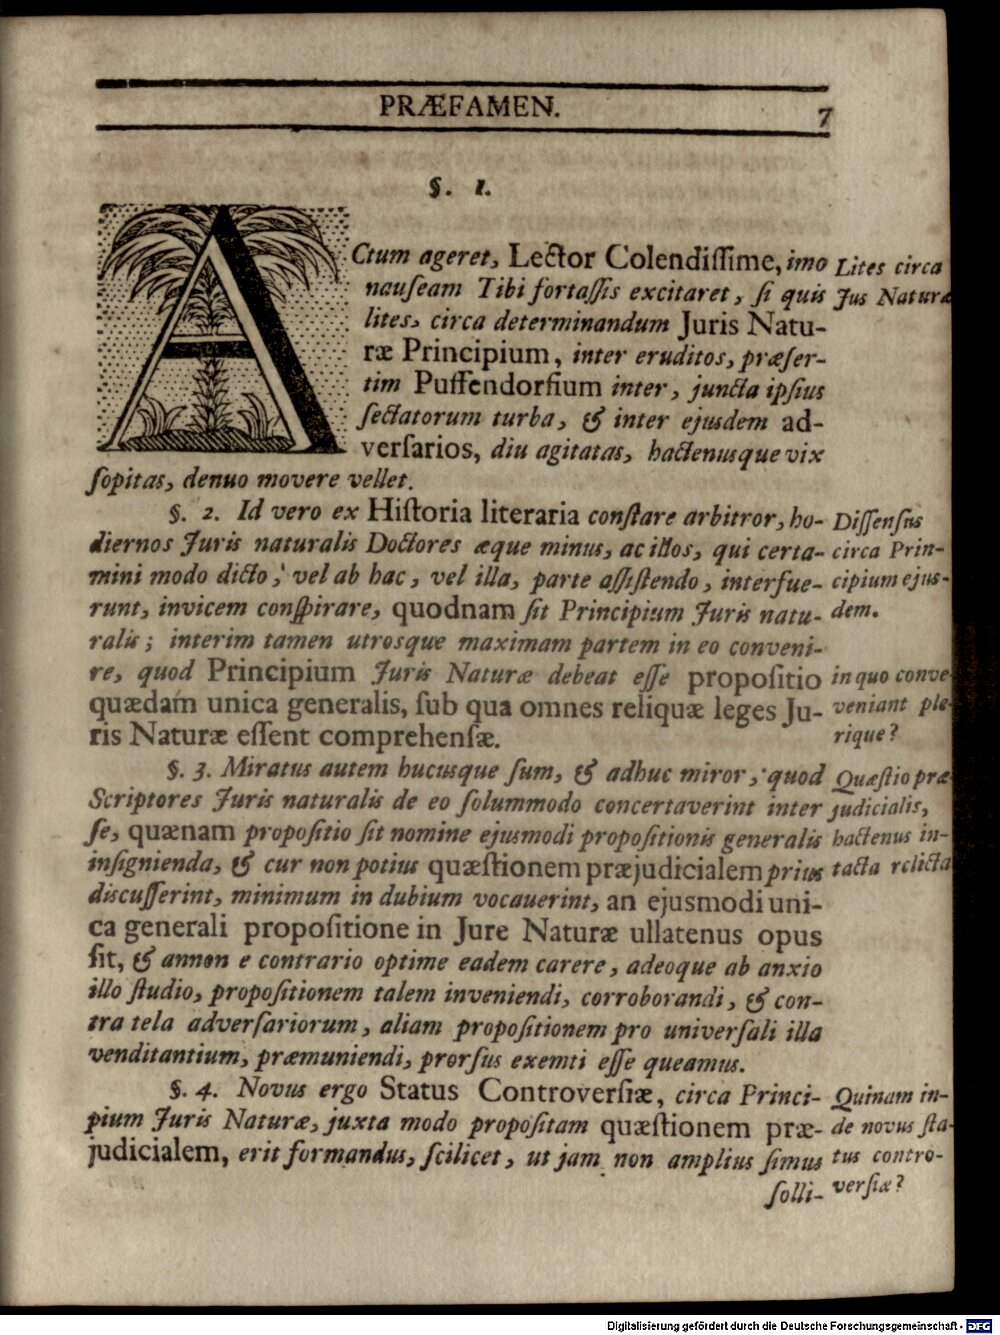 PRÆFAMEN. 7
§. 1.
ACtum ageret, Lector Colendiſſime, imo
nauſeam Tibi fortaſſis excitaret, ſi quis
lites, circa determinandum Juris Natu-
ræ Principium, inter eruditos, præſer-
tim Puffendorfium inter, juncta ipſius
ſectatorum turba, & inter ejusdem ad-
verſarios, diu agitatas, hactenusque vix
ſopitas, denuo movere vellet.
Lites circa
Jus Naturæ
§. 2. Id vero ex Hiſtoria literaria conſtare arbitror, ho-
diernos Juris naturalis Doctores æque minus, ac illos, qui certa-
mini modo dicto, vel ab hac, vel illa, parte aſſiſtendo, interfue-
runt, invicem conſpirare, quodnam ſit Principium Juris natu-
ralis; interim tamen utrosque maximam partem in eo conveni-
re, quod Principium Juris Naturæ debeat eſſe propoſitio
quædam unica generalis, ſub qua omnes reliquæ leges Ju-
ris Naturæ eſſent comprehenſæ.
Diſſenſus
circa Prin-
cipium ejus-
dem.
in quo conve-
veniant ple-
rique?
§. 3. Miratus autem hucusque ſum, & adhuc miror, quod
Scriptores Juris naturalis de eo ſolummodo concertaverint inter
ſe, quænam propoſitio ſit nomine ejusmodi propoſitionis generalis
inſignienda, & cur non potius quæſtionem præjudicialem prius
discuſſerint, minimum in dubium vocauerint, an ejusmodi uni-
ca generali propoſitione in Jure Naturæ ullatenus opus
ſit, & annon e contrario optime eadem carere, adeoque ab anxio
illo ſtudio, propoſitionem talem inveniendi, corroborandi, & con-
tra tela adverſariorum, aliam propoſitionem pro univerſali illa
venditantium, præmuniendi, prorſus exemti eſſe queamus.
Quæſtio præ-
judicialis,
hactenus in-
tacta relicta
§. 4. Novus ergo Status Controverſiæ, circa Princi-
pium Juris Naturæ, juxta modo propoſitam quæſtionem præ-
judicialem, erit formandus, ſcilicet, ut jam non amplius ſimus
ſolli-
Quinam in-
de novus ſta-
tus contro-
verſiæ?
Digitalisierung gefördert durch die Deutsche Forschungsgemeinschaft - DFG